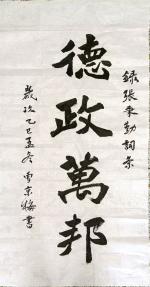 錄張東勤詞宗
德政萬邦
歲次乙巳孟冬曹宗梅書